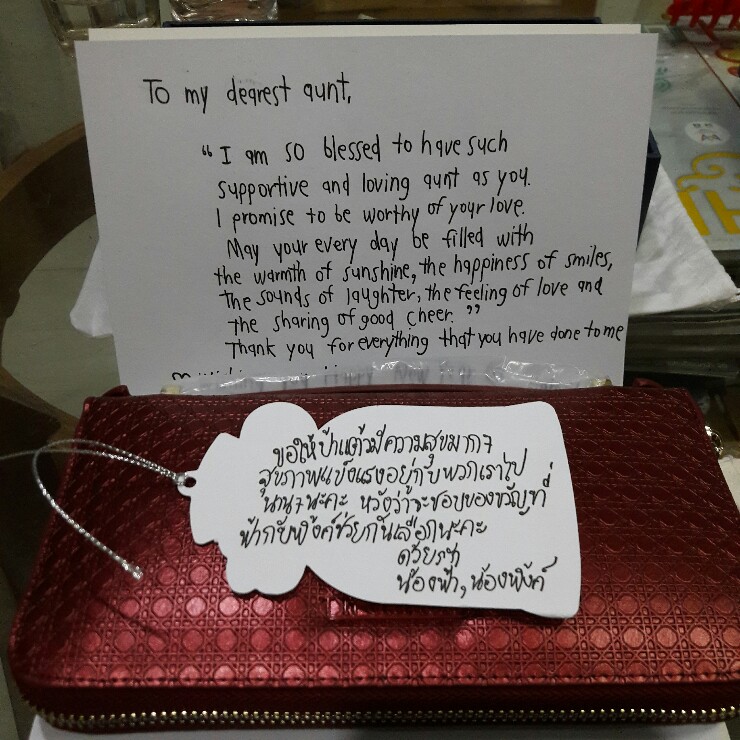 To my dearest aunt,
“I am so blessed to have such
supportive and loving aunt as you.
I promise to be worthy of your love.
May your every day be filled with
the warmth of sunshine, the happiness of smiles,
the sounds of laughter, the feeling of love and
the sharing of good cheer.”
Thank you for everything that you have done to me
ขอให้ป้าแต๋วมีความสุขมากๆ
สุขภาพแข็งแรงอยู่กับพวกเราไป
นานๆนะคะ หวังว่าจะชอบของขวัญที่
ฟ้ากับพิ้งค์ช่วยกันเลือกนะคะ
ด้วยรัก
น้องฟ้า, น้องพิ้งค์